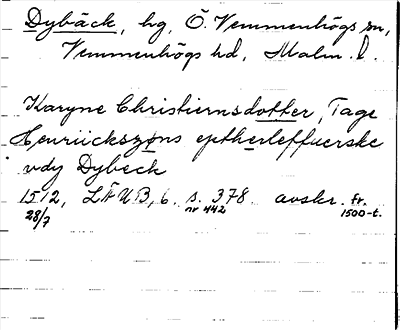 Dybäck, hg, Ö. Vemmenhögs sn,
Vemmenhögs hd, Malm. l.
Karyne Christiernsdotter, Tage
Henriickszøns eptherleffuerske
vdy Dybeck
1512, LÄUB, 6. s. 378. avskr. fr.
28/7 nr 442 1500-t.